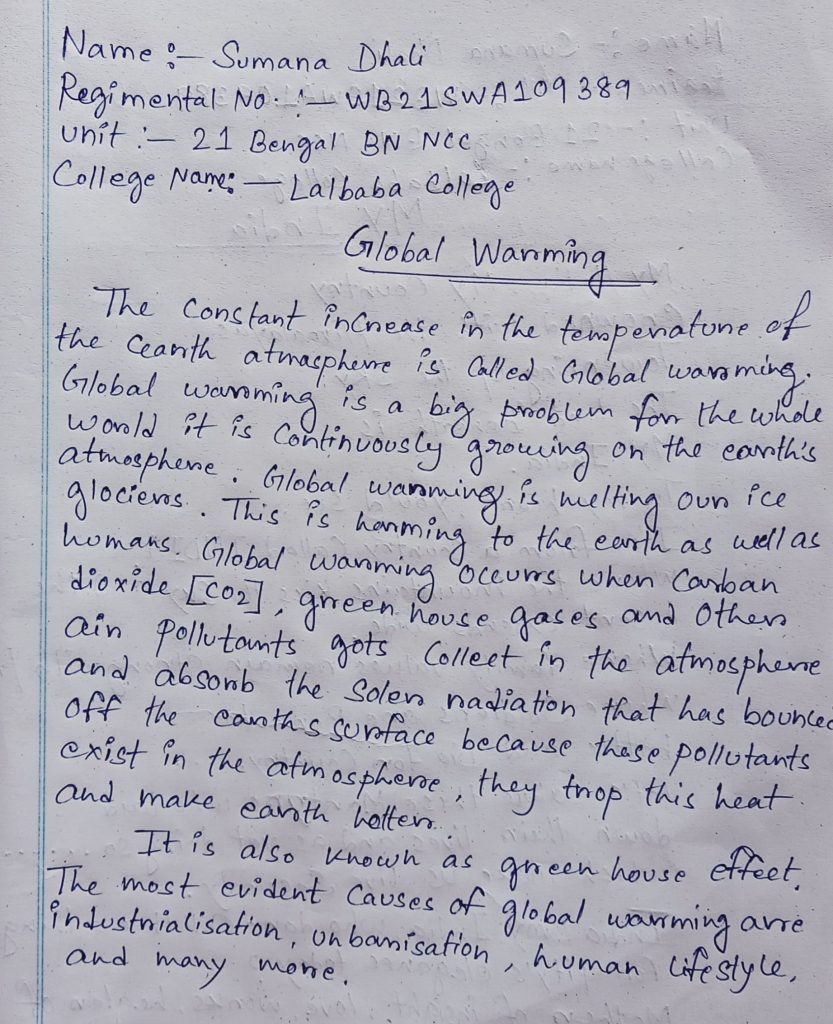 Name :- Sumana Dhali
Regimental No. :- WB21SWA109389
Unit :- 21 Bengal BN NCC
College Name: - Lalbaba College
Global Warming
The constant increase in the temperature of
the Cearth atmasphere is called Global warming.
Global warming is a big problem for the whole
world it is continuously growing on the earth's
atmosphere. Global warming is melting our ice
glociers. This is harming to the earth as well as
humans. Global warming occurs when Carban
dioxide [CO2], green house gases and others
air pollutants gots collect in the atmosphere
and absorb the Soler radiation that has bounced
off the earths surface because these pollutants
exist in the atmosphere, they trop this heat
and make earth hotter.
It is also known as green house effect.
The most evident causes of global warming are
industrialisation, urbanisation, human lifestyle,
and many more.